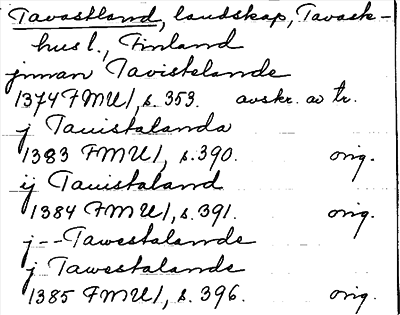 Tavastland, landskap, Tavast-
hus l., Finland
jnnan Tavistelande
1374 FMU1, s. 353. avskr. av tr.
j Tauistalanda
1383 FMU1, s. 390. orig.
ij Tauistaland
1384 FMU1, s. 391. orig.
j -- Tawestalande
j Tawestalande
1385 FMU1, s. 396. orig.